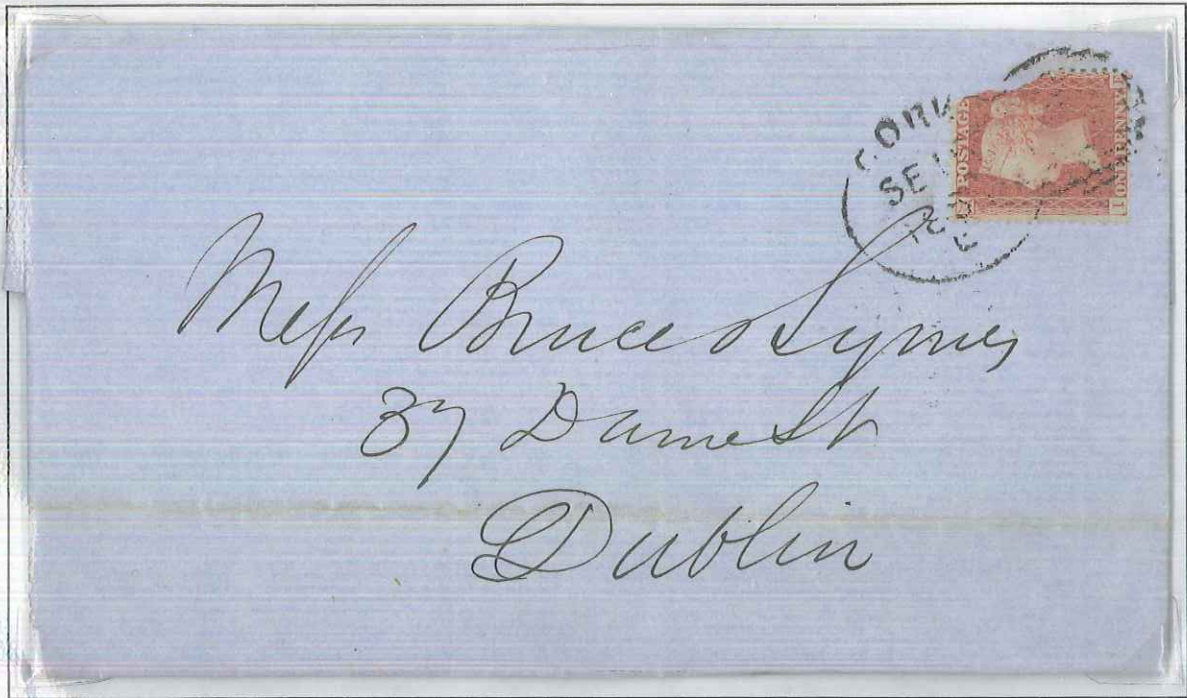 CORK
SE
POSTAGE
ONE PENNY
Mess Bruce & Symes
37 Dame St
Dublin